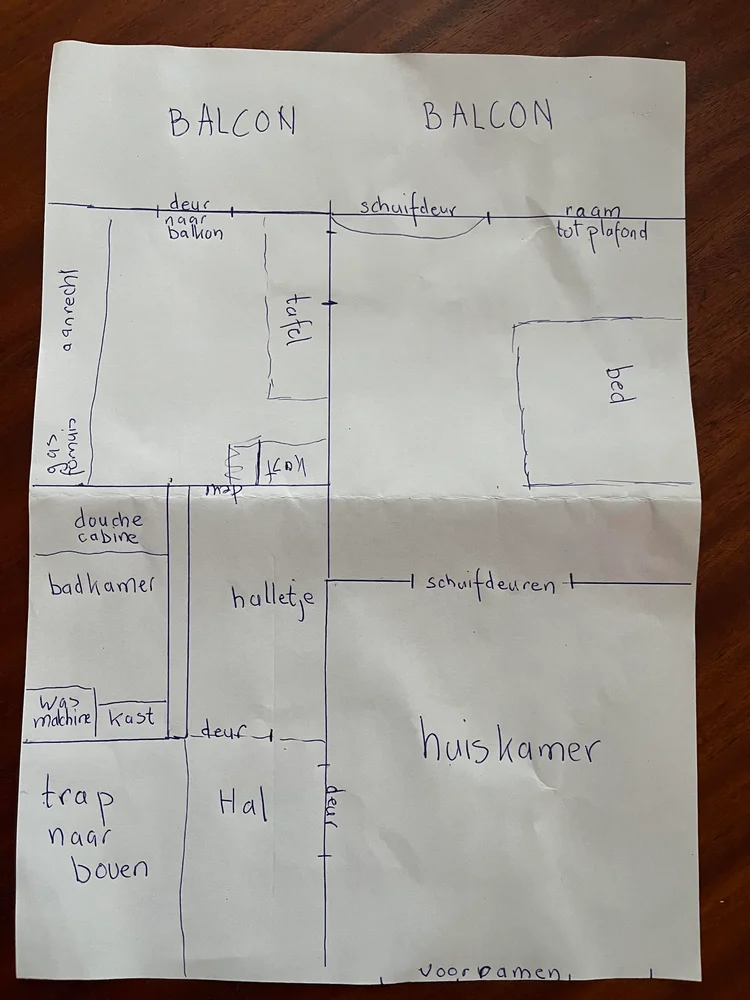 BALCON
BALCON
deur
naar
balkon
schuifdeur
raam
tot plafond
aanrecht
tafel
bed
gas
fornuis
kast
deur
douche
cabine
badkamer
halletje
schuifdeuren
was
machine
kast
deur
huiskamer
trap
naar
boven
Hal
deur